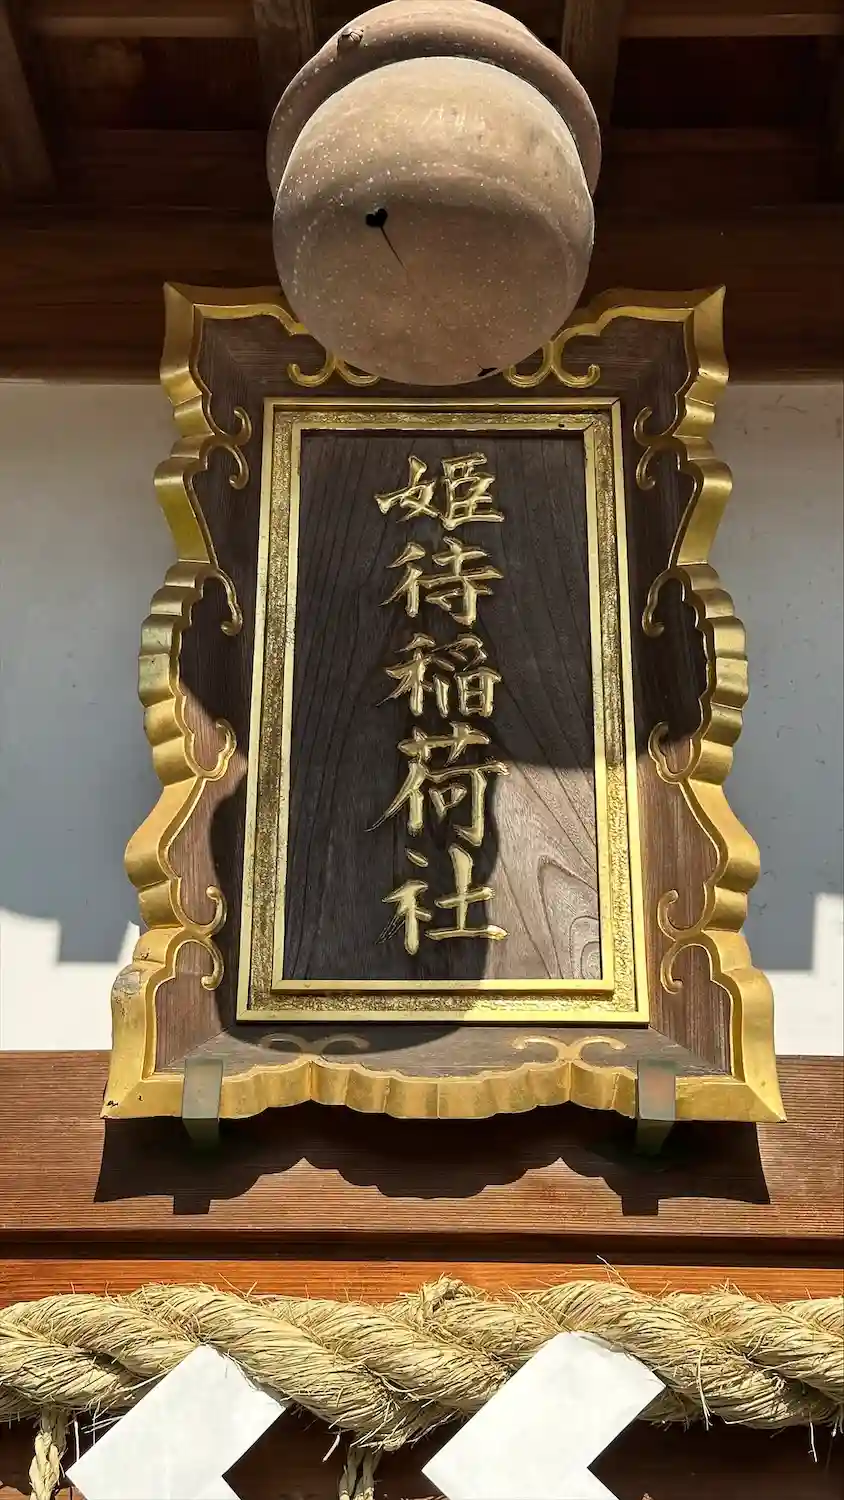 姫待稲荷社